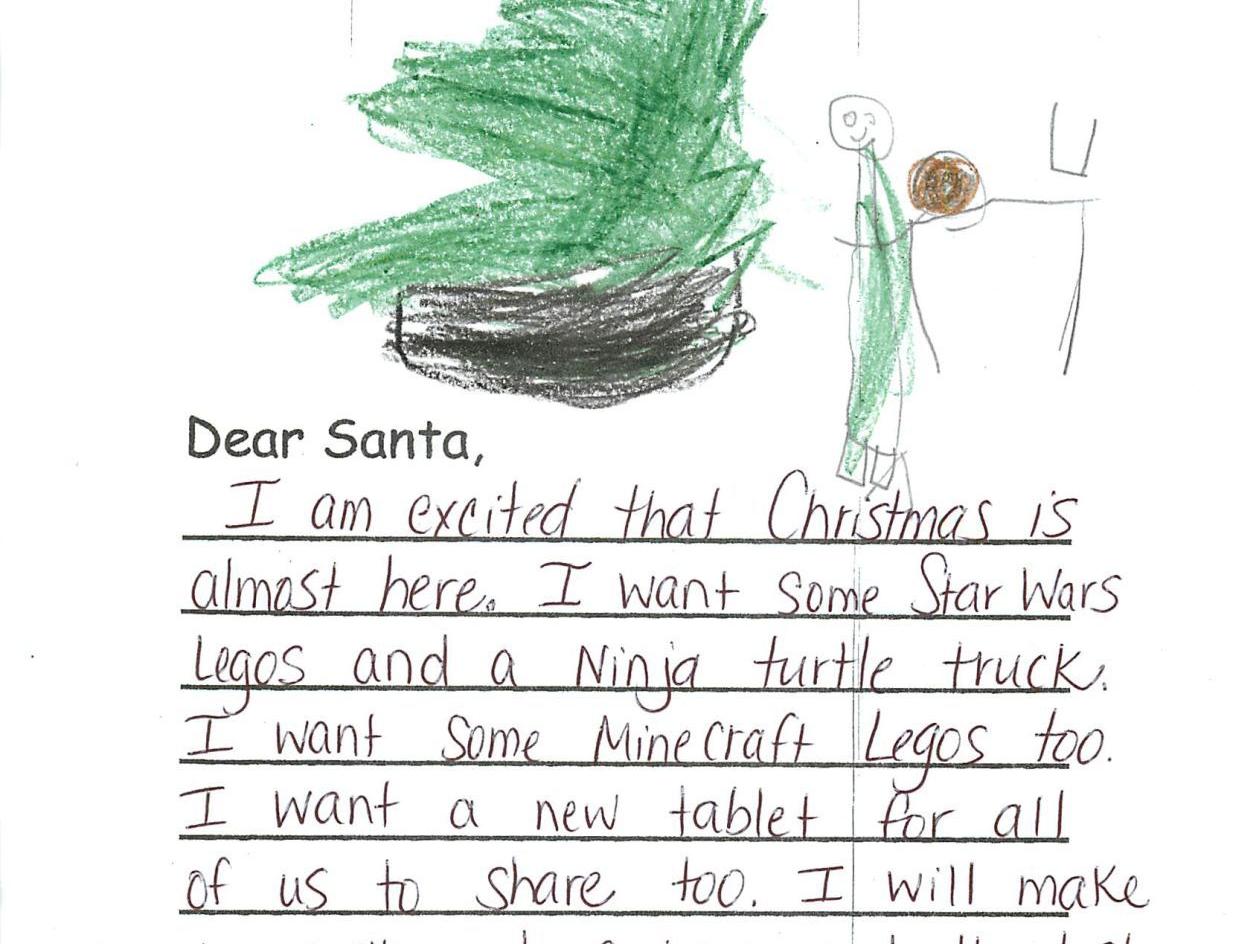 Dear Santa,
I am excited that Christmas is
almost here. I want some Star Wars
Legos and a Ninja turtle truck.
I want some Minecraft Legos too.
I want a new tablet for all
of us to share too. I will make